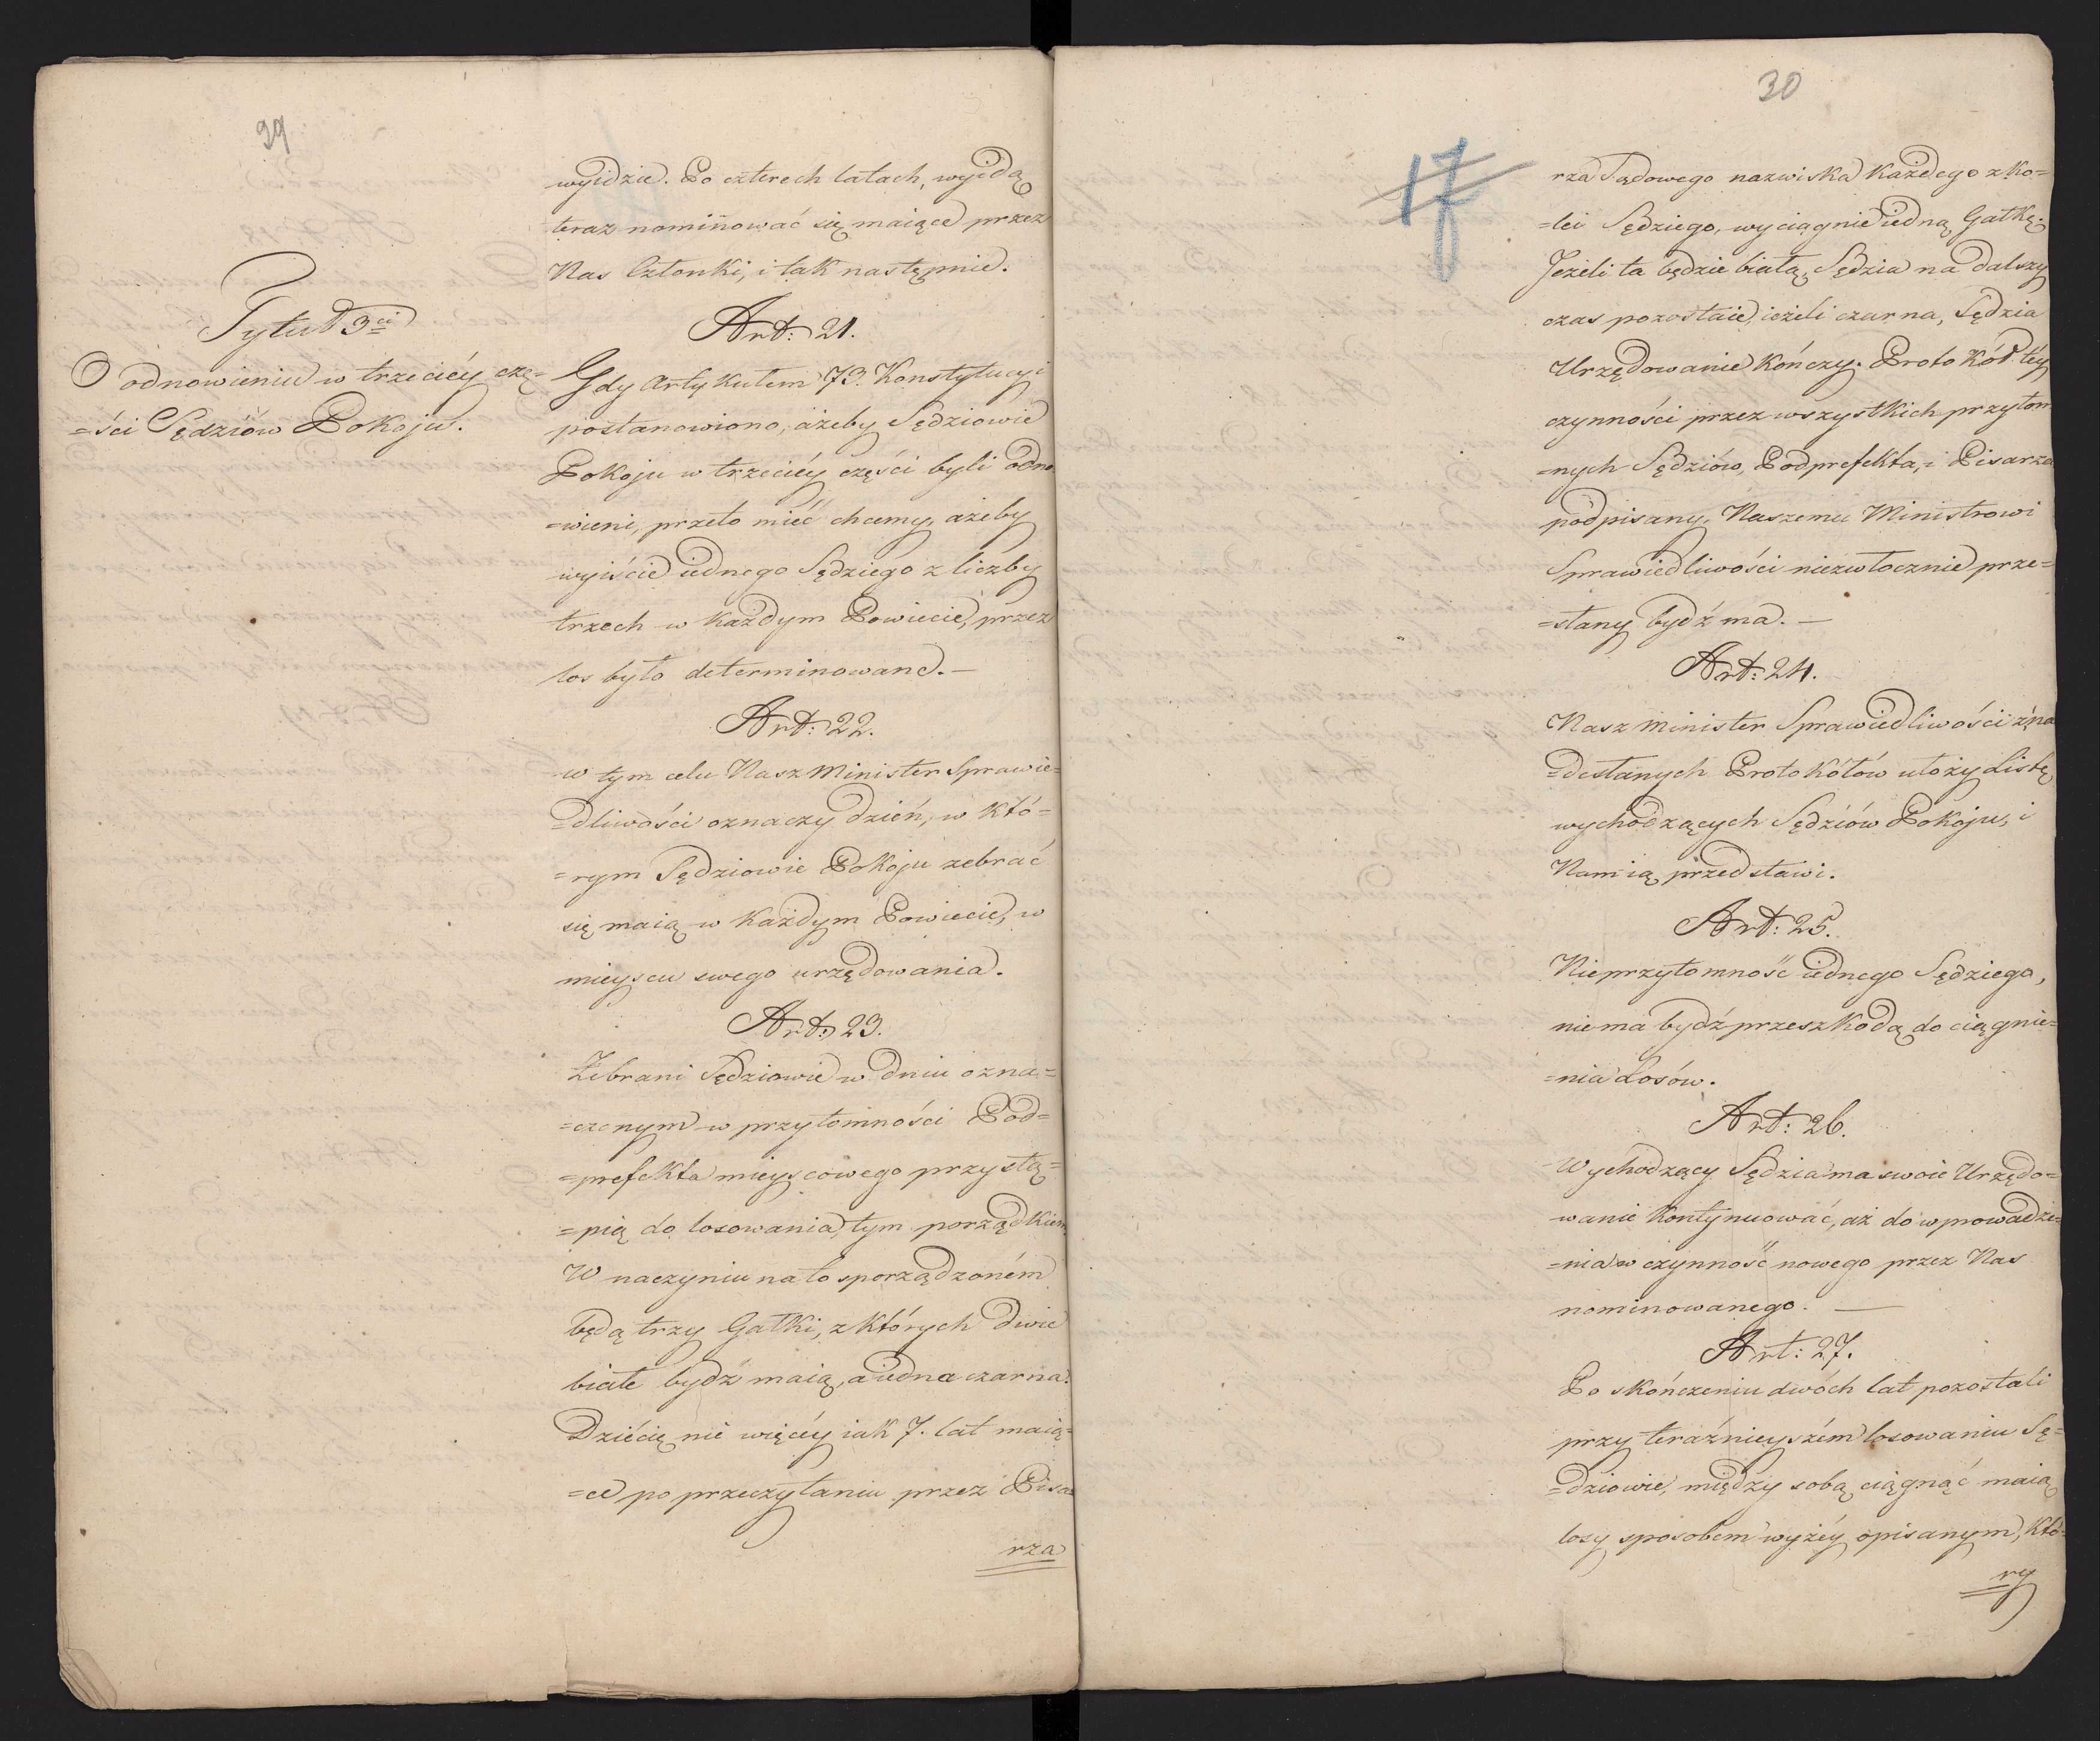 39
wyidzie. Po czterech latach, wyidą
teraz nominować się maiące przez
Nas Członki, i tak następnie.
Tytuł 3ci
O odnowieniu w trzeciéy czę=
=ści Sędziów Pokoju.
Art: 21.
Gdy Artykułem 73. Konstytucyi
postanowiono, ażeby Sędziowie
Pokoju w trzeciéy części byli odno
=wieni, przeto mieć chcemy, ażeby
wyiście iednego Sędziego z liczby
trzech w każdym Powiecie, przez
los było determinowane. —
Art: 22.
w tym celu Nasz Minister Sprawie=
=dliwości oznaczy dzień, w któ=
=rym Sędziowie Pokoju zebrać
się maią w każdym Powiecie, w
mieyscu swego urzędowania.
Art: 23.
Zebrani Sędziowie w dniu ozna=
=czonym w przytomności Pod=
=prefekta mieyscowego przystą=
=pią do losowania, tym porządkiem
W naczyniu na to sporządzoném
będą trzy Gałki, z których dwie
białe bydź maią, a iedna czarna.
Dziécię nie więcéy iak 7. lat maią=
=ce po przeczytaniu przez Pisa
rza
30
17
rza Sądowego nazwiska każdego z ko=
=lei Sędziego, wyciągnie iedną Gałkę.
Jeżeli ta będzie białą, Sędzia na dalszy
czas pozostaie, ieżeli czarna, Sędzia
Urzędowanie kończy. Protokół téy
czynności przez wszystkich przytom
=nych Sędziów, Podprefekta, i Pisarza
podpisany, Naszemu Ministrowi
Sprawiedliwości niezwłocznie prze=
=słany bydź ma. —
Art: 24.
Nasz Minister Sprawiedliwości z na
=desłanych Protokółów ułoży Listę
wychodzących Sędziów Pokoju, i
Nam ią przedstawi.
Art: 25.
Nieprzytomność iednego Sędziego,
niema bydź przeszkodą do ciągnie=
=nia Losów.
Art: 26.
Wychodzący Sędzia ma swoie Urzędo=
wanie kontynuować, aż do wprowadze=
=nia w czynność nowego przez Nas
nominowanego. —
Art: 27.
Po skończeniu dwóch lat pozostali
przy teraźnieyszém losowaniu Sę=
=dziowie, między sobą ciągnąć maią
losy sposobem wyżéy opisanym, któ=
ry